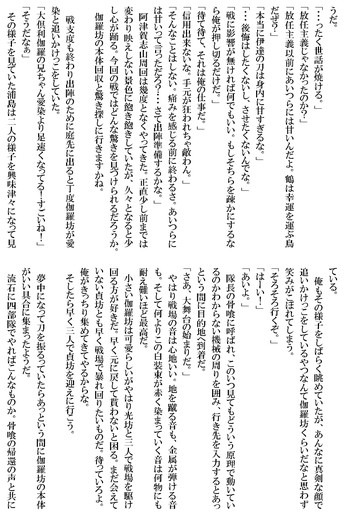 うだ。
「…ったく世話が焼ける。」
「放任主義じゃなかったのか?」
「放任主義以前にあいつらには甘いんだよ。鶴は幸運を運ぶ鳥
だぜ?」
「本当に伊達の刀は身内に甘すぎるな。」
「…後悔はしたくないし、させたくないんでな。」
「戦に影響が無ければ何でもいい。もしそちらを疎かにするな
ら俺が押し切るだけだ。」
「待て待て、それは俺の仕事だ。」
「信用出来ないな。手元が狂われちゃ敵わん。」
「そんなことはしない。痛みを感じる前に終わるさ。あいつらに
は甘いって言っただろう?…さて出陣準備するかな。」
阿津賀志山周回は幾度となくやってきた。正直少し前までは
変わり映えしない景色に飽き飽きしていたが、久々となると少
し心が踊る。今回の戦ではどんな驚きを見つけられるだろうか。
伽羅坊の本体回収と驚き探しに行きますかね。
戦支度も終わり出陣のために庭先に出ると丁度伽羅坊が愛
染と追いかけっこをしていた。
「大倶利伽羅の兄ちゃん愛染より足速くなってるーすごいね!」
「そうだなぁ」
その様子を見ていた浦島は二人の様子を興味津々になって見
ている。
俺もその様子をしばらく眺めていたが、あんなに真剣な顔で
追いかけっこをしているやつなんて伽羅坊くらいだなと思わず
笑みがこぼれてしまう。
「そろそろ行くぞ。」
「はーい!」
「あいよ。」
隊長の骨喰に呼ばれ、このいつ見てもどういう原理で動いてい
るのかわからない機械の周りを囲み、行き先を入力するとあっ
という間に目的地へ到着だ。
「さあ、大舞台の始まりだ。」
やはり戦場の音は心地いい。地を蹴る音も、金属が弾ける音
も。そして何よりこの白装束が赤く染まっていく音は何物にも
耐え難いほど最高だ。
小さい伽羅坊は可愛らしいがやはり光坊と三人で戦場を駆け
回る方が好きだ。早く元に戻して貰わないと困る。まだ会えて
いない貞坊とも早く戦場で暴れ回りたいものだ。待っていろよ。
俺がきっちり集めてきてやるからな。
そしたら早く三人で貞坊を迎えに行こう。
夢中になって刀を振るっていたらあっという間に伽羅坊の本体
がいい具合に集まったようだ。
流石に四部隊でやればこんなものか。骨喰の帰還の声と共に